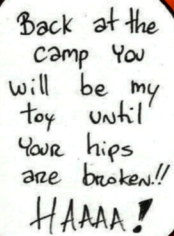 Back at the
camp You
will be my
toy UNtil
YOUR hips
are broken!!
HAAAA!